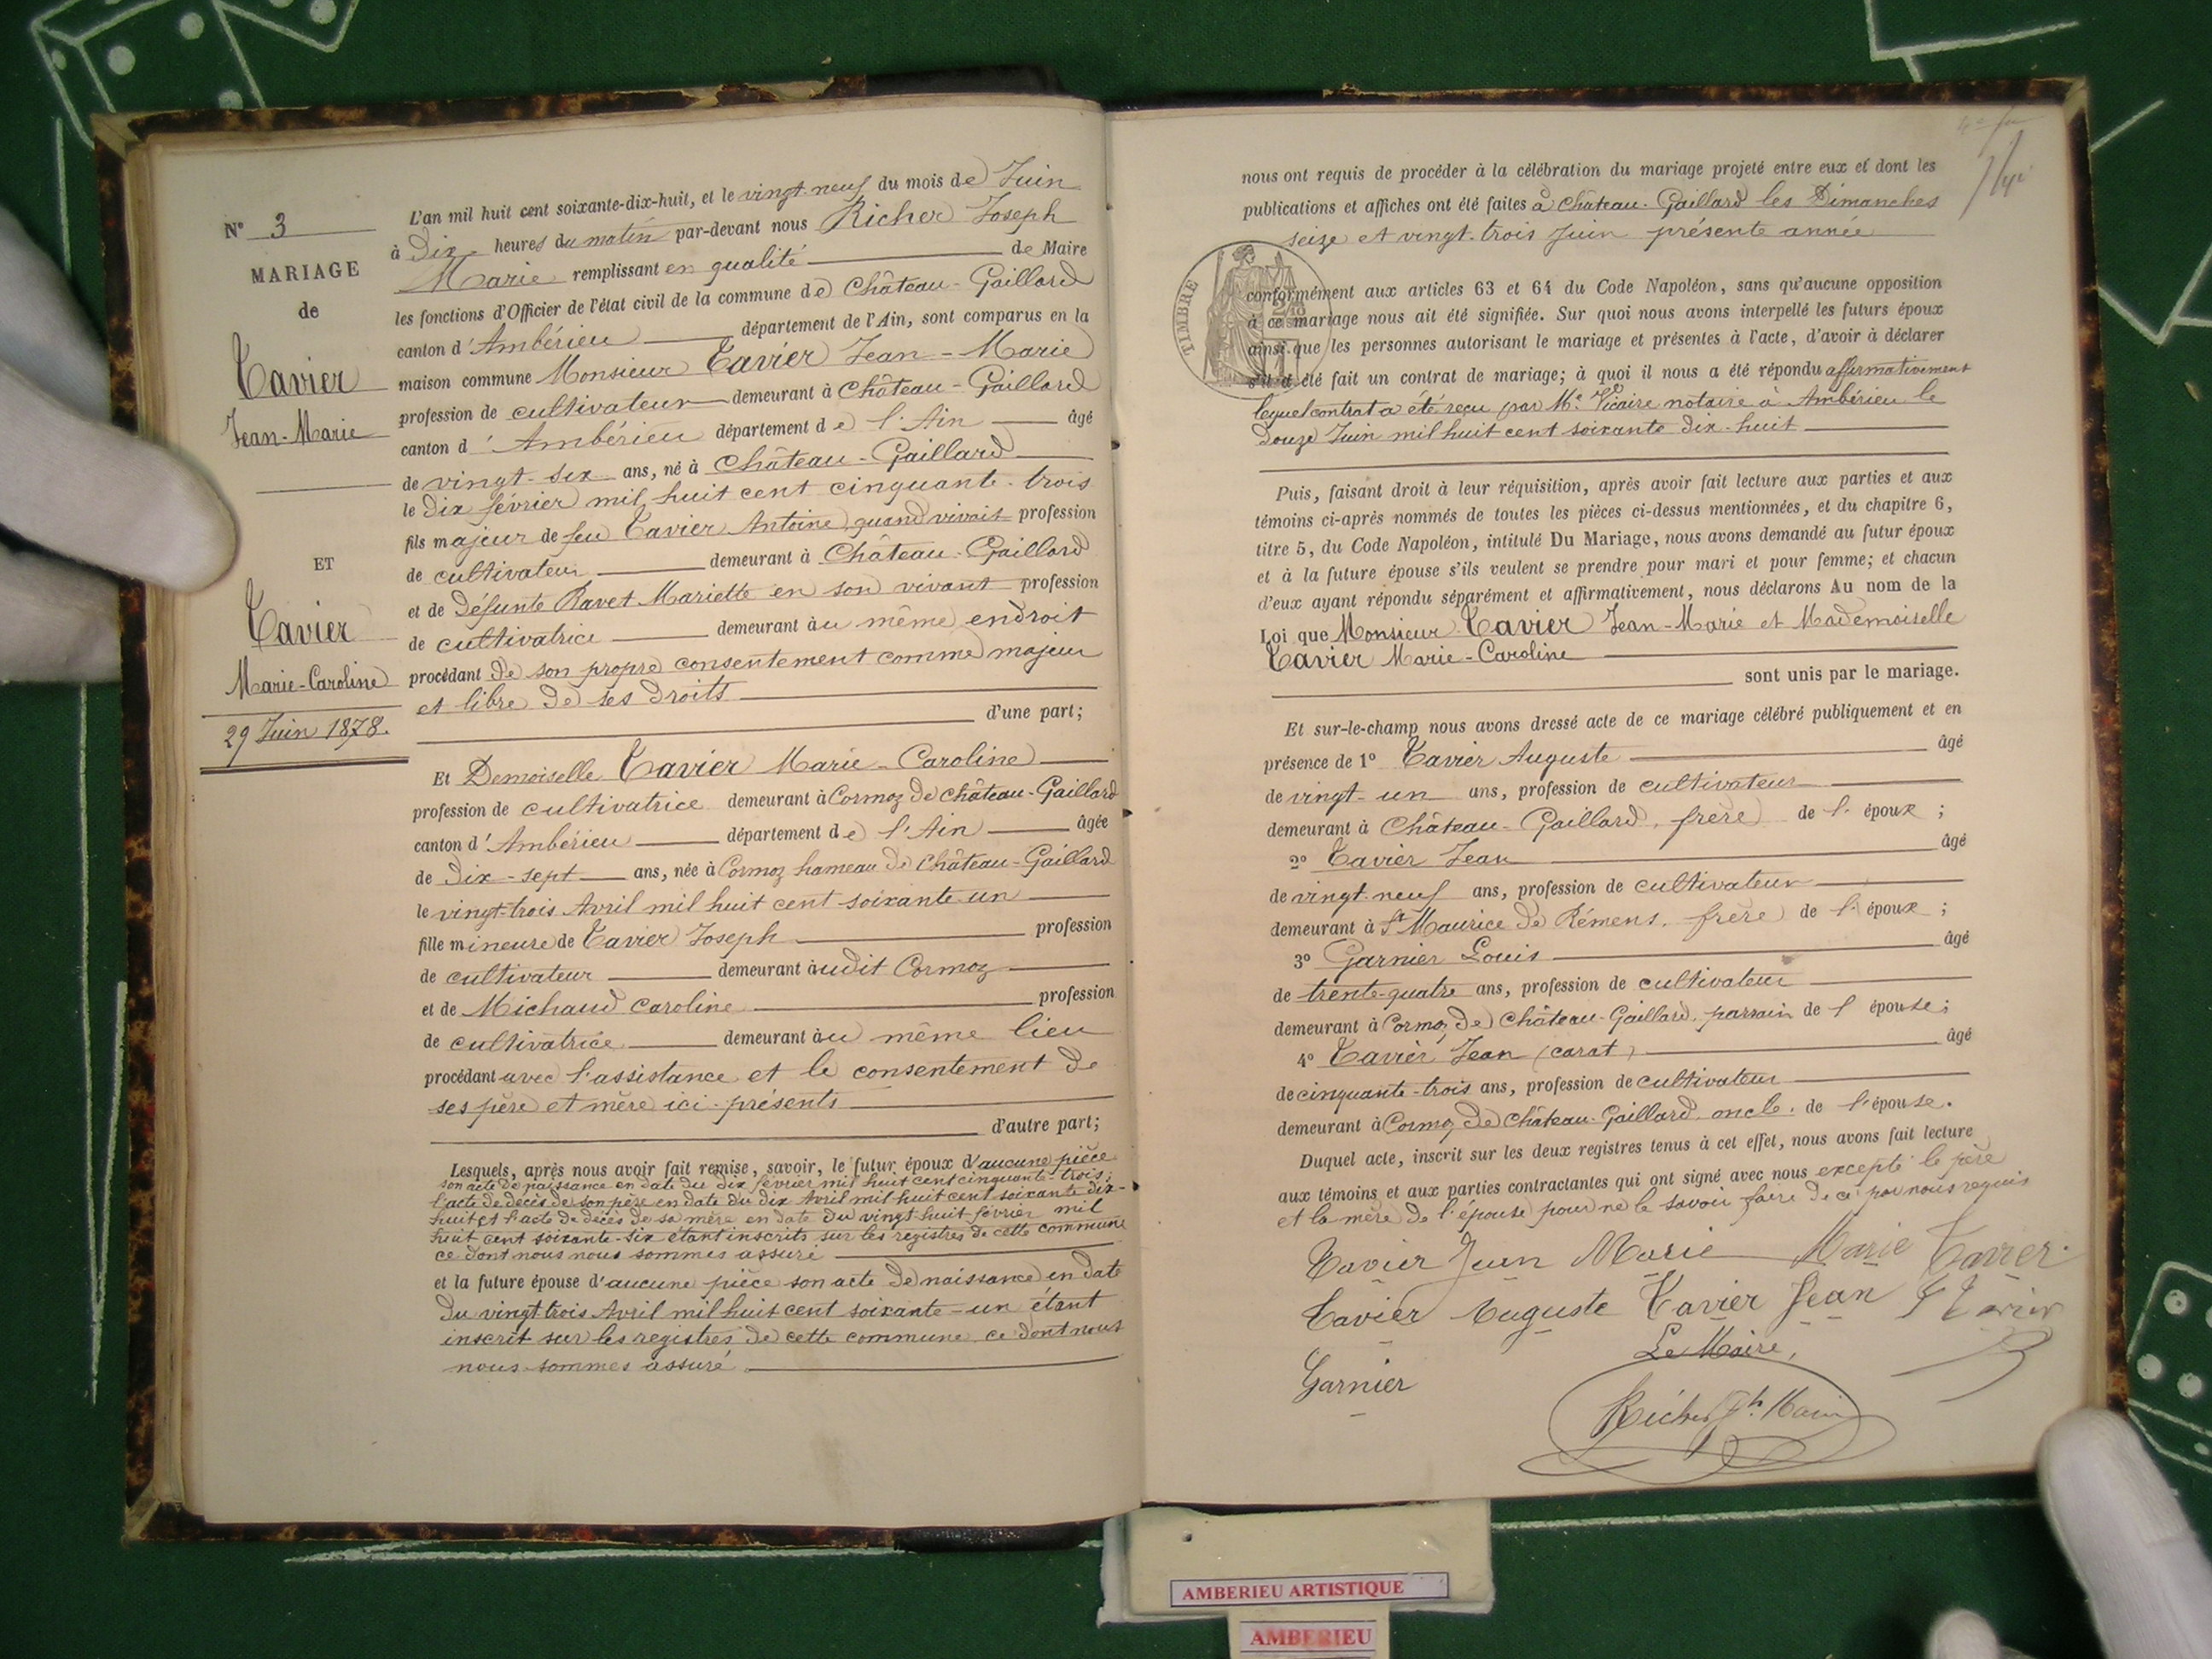 N° 3
MARIAGE
de
Tavier
Jean-Marie
ET
Tavier
Marie-Caroline
29 Juin 1878.
L'an mil huit cent soixante-dix-huit, et le vingt-neuf du mois de Juin
à Dix heures du matin par-devant nous Richer Joseph
Marie remplissant en qualité de Maire
les fonctions d'Officier de l'état civil de la commune de Château-Gaillard
canton d'Ambérieu département de l'Ain, sont comparus en la
maison commune Monsieur Tavier Jean-Marie
profession de cultivateur demeurant à Château-Gaillard
canton d'Ambérieu département de l'Ain âgé
de vingt-six ans, né à Château-Gaillard
le dix février mil huit cent cinquante-trois
fils majeur de feu Tavier Antoine quand vivait profession
de cultivateur demeurant à Château-Gaillard
et de Défunte Ravet Mariette en son vivant profession
de cultivatrice demeurant au même endroit
procédant de son propre consentement comme majeur
et libre de ses droits
d'une part;
Et Demoiselle Tavier Marie-Caroline
profession de cultivatrice demeurant à Cormoz de Château-Gaillard
canton d'Ambérieu département de l'Ain âgée
de Dix-sept ans, née à Cormoz hameau de Château-Gaillard
le vingt-trois Avril mil huit cent soixante-un
fille mineure de Tavier Joseph profession
de cultivateur demeurant audit Cormoz
et de Michaud Caroline profession
de cultivatrice demeurant au même lieu
procédant avec l'assistance et le consentement de
ses père et mère ici-présents
d'autre part;
Lesquels, après nous avoir fait remise, savoir, le futur époux d'aucune pièce
son acte de naissance en date du dix février mil huit cent cinquante-trois;
l'acte de décès de son père en date du dix Avril mil huit cent soixante dix-
huit et l'acte de décès de sa mère en date du vingt-huit février mil
huit cent soixante-six étant inscrits sur les registres de cette commune
ce dont nous nous sommes assuré
et la future épouse d'aucune pièce son acte de naissance en date
du vingt-trois Avril mil huit cent soixante-un étant
inscrit sur les registres de cette commune ce dont nous
nous sommes assuré.
nous ont requis de procéder à la célébration du mariage projeté entre eux et dont les
publications et affiches ont été faites à Château-Gaillard les Dimanches
seize et vingt-trois Juin présente année
TIMBRE
conformément aux articles 63 et 64 du Code Napoléon, sans qu'aucune opposition
à ce mariage nous ait été signifiée. Sur quoi nous avons interpellé les futurs époux
ainsi que les personnes autorisant le mariage et présentes à l'acte, d'avoir à déclarer
s'il a été fait un contrat de mariage; à quoi il nous a été répondu affirmativement
lequel contrat a été reçu par Me. Vicaire notaire à Ambérieu le
douze Juin mil huit cent soixante dix-huit
Puis, faisant droit à leur réquisition, après avoir fait lecture aux parties et aux
témoins ci-après nommés de toutes les pièces ci-dessus mentionnées, et du chapitre 6,
titre 5, du Code Napoléon, intitulé Du Mariage, nous avons demandé au futur époux
et à la future épouse s'ils veulent se prendre pour mari et pour femme; et chacun
d'eux ayant répondu séparément et affirmativement, nous déclarons Au nom de la
Loi que Monsieur Tavier Jean-Marie et Mademoiselle
Tavier Marie-Caroline
sont unis par le mariage.
Et sur-le-champ nous avons dressé acte de ce mariage célébré publiquement et en
présence de 1° Tavier Auguste âgé
de vingt-un ans, profession de cultivateur
demeurant à Château-Gaillard, frère de l'époux;
2° Tavier Jean âgé
de vingt-neuf ans, profession de cultivateur
demeurant à St Maurice de Rémens, frère de l'époux;
3° Garnier Louis âgé
de trente-quatre ans, profession de cultivateur
demeurant à Cormoz de Château-Gaillard, parrain de l'épouse;
4° Tavier Jean (carat) âgé
de cinquante-trois ans, profession de cultivateur
demeurant à Cormoz de Château-Gaillard, oncle, de l'épouse.
Duquel acte, inscrit sur les deux registres tenus à cet effet, nous avons fait lecture
aux témoins et aux parties contractantes qui ont signé avec nous excepté le père
et la mère de l'épouse pour ne le savoir faire de ce par nous requis
Tavier Jean Marie Marie Tavier
Tavier Auguste Tavier Jean J Tavier
Le Maire,
Garnier
Richer Jh. Marie
AMBERIEU ARTISTIQUE
AMBERIEU